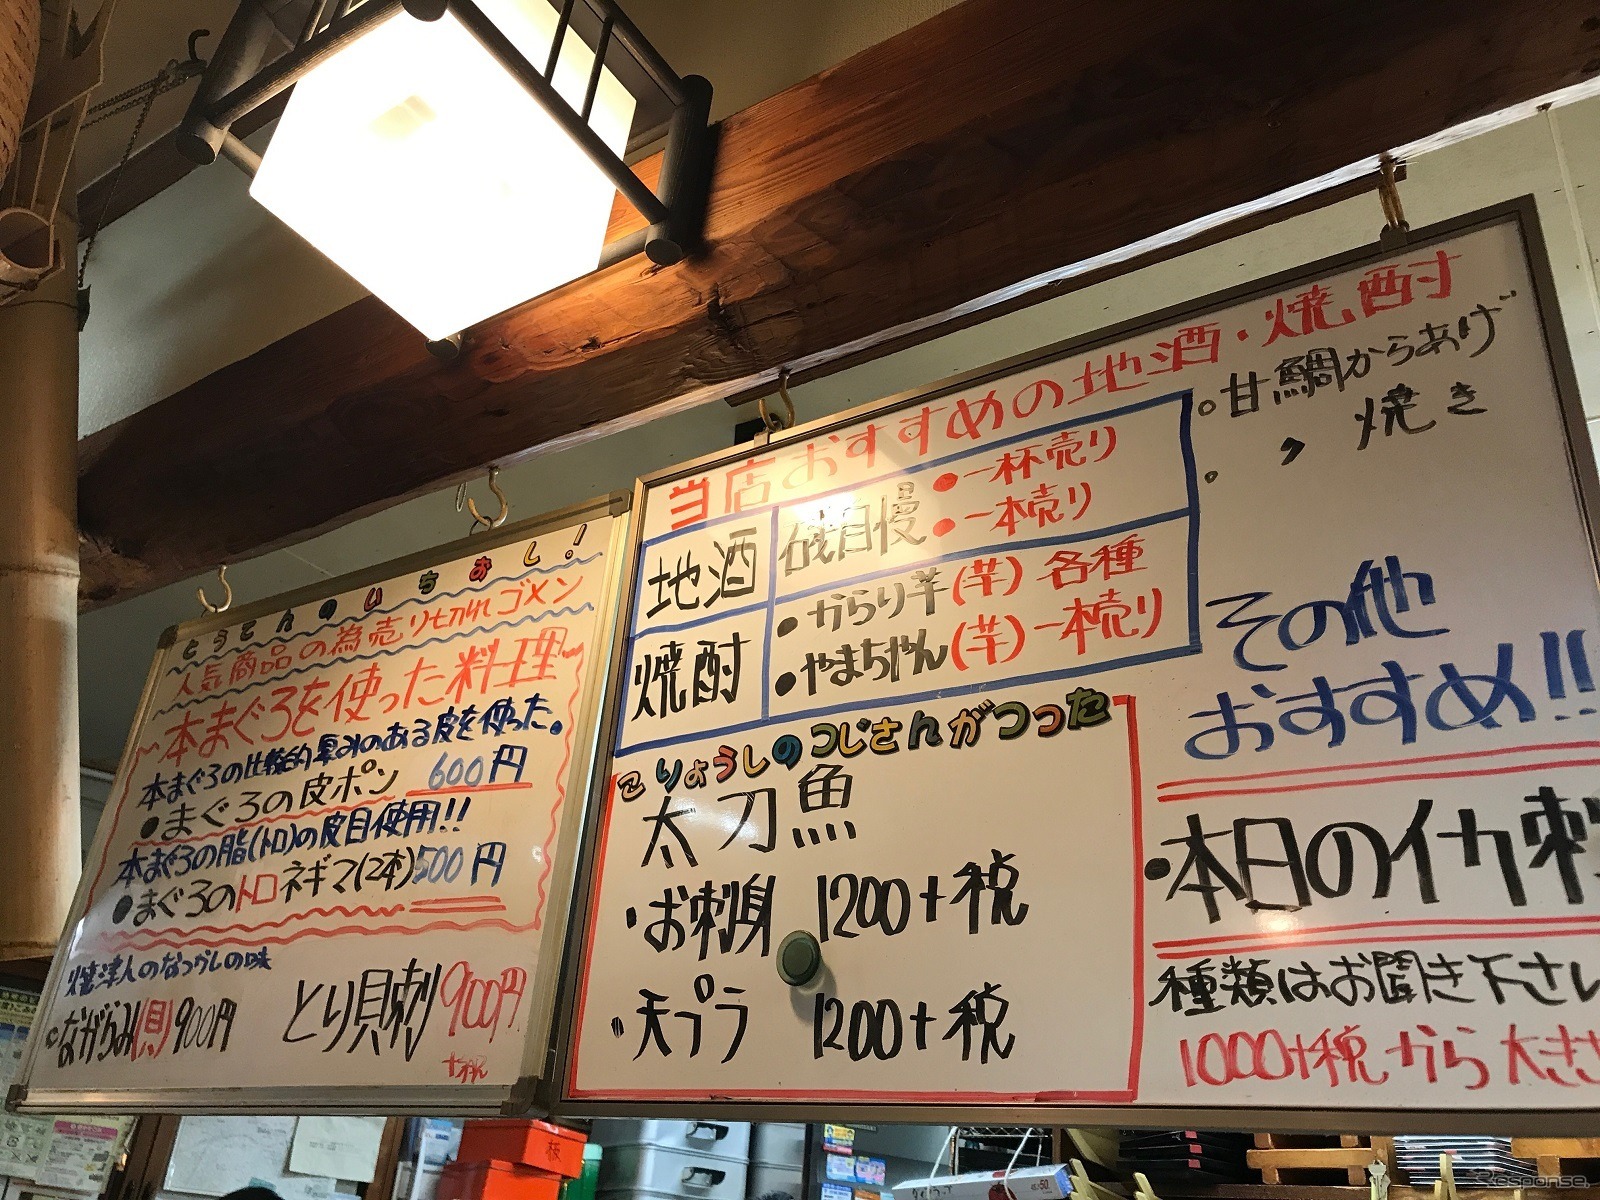 とうてんのいちおし!
人気商品の為売り切れゴメン
~本まぐろを使った料理~
本まぐろの比較的厚みのある皮を使った。
●まぐろの皮ポン 600円
本まぐろの脂(トロ)の皮目使用!!
●まぐろのトロネギマ(2本)500円
焼津人のなつかしの味
ながらみ(貝)900円
とり貝刺900円
+税
当店おすすめの地酒・焼酎
地酒
磯自慢
●一杯売り
●一本売り
焼酎
●からり芋(芋)各種
●やまちゃん(芋)一本売り
こりょうしのつじさんがつった
太刀魚
・お刺身 1200+税
・天プラ 1200+税
。甘鯛からあげ
。 〃 焼き
その他
おすすめ!!
・本日のイカ刺
種類はお聞き下さい
1000+税から大きさ
Response.